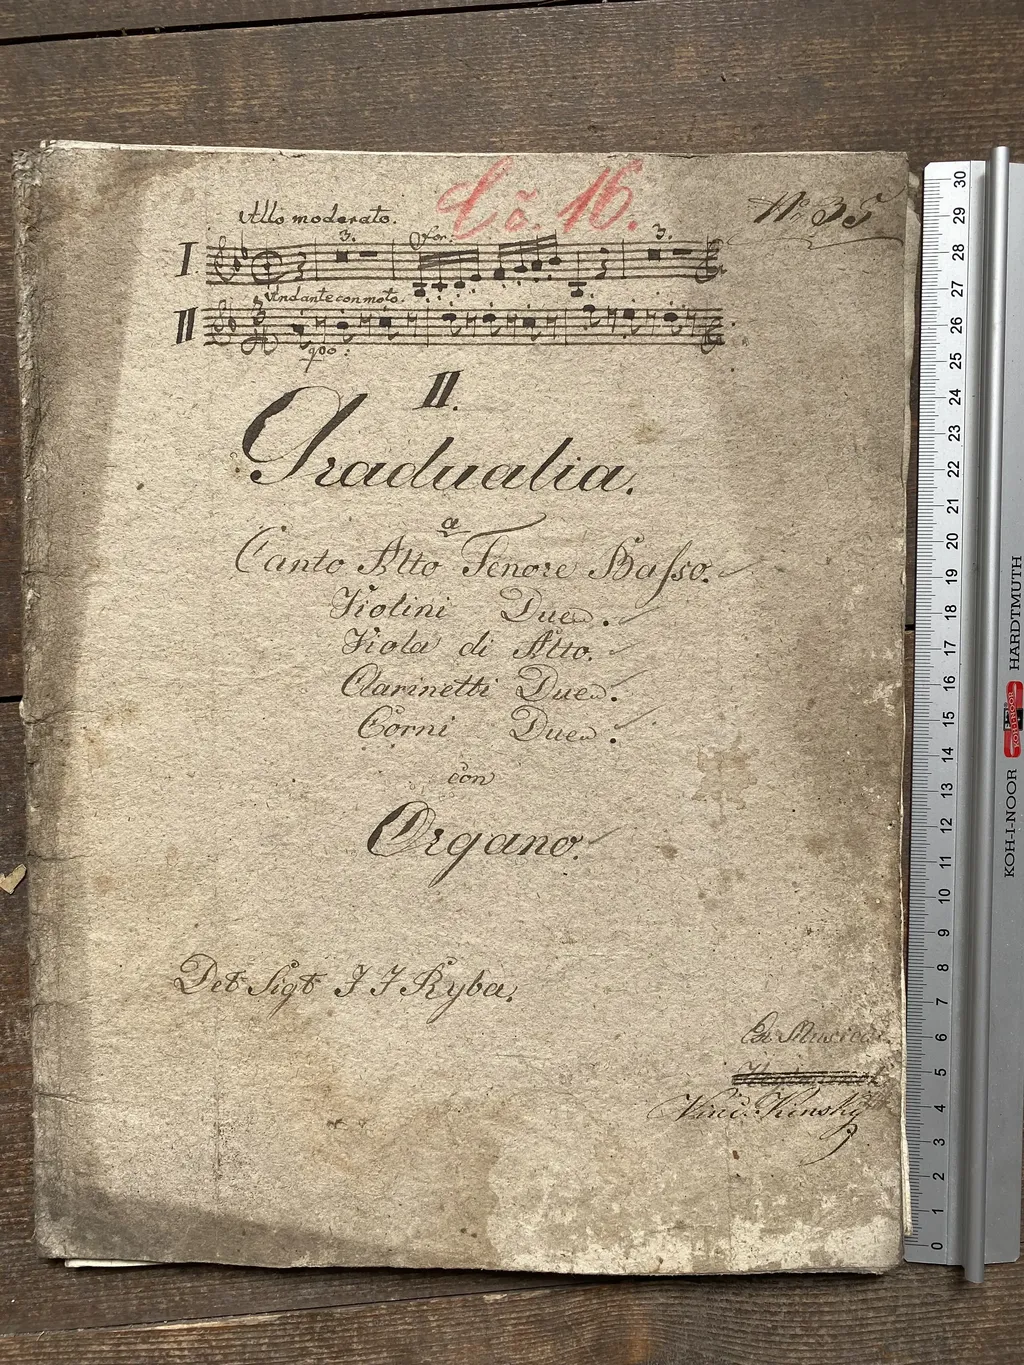 Čo. 16.
No. 35
Allo moderato.
I
3.
for:
3.
Andante con moto.
II
II.
Gradualia.
a
Canto Alto Tenore Basso.
Violini Due.
Viola di Alto.
Clarinetti Due.
Corni Due.
con
Organo.
Del Sigl J J Ryba.
Ex Musica
Vinc. Kinsky
30
29
28
27
26
25
24
23
22
21
20
19
18
17
16
15
14
13
12
11
10
9
8
7
6
5
4
3
2
1
0
KOH-I-NOOR KOH-I-NOOR HARDTMUTH